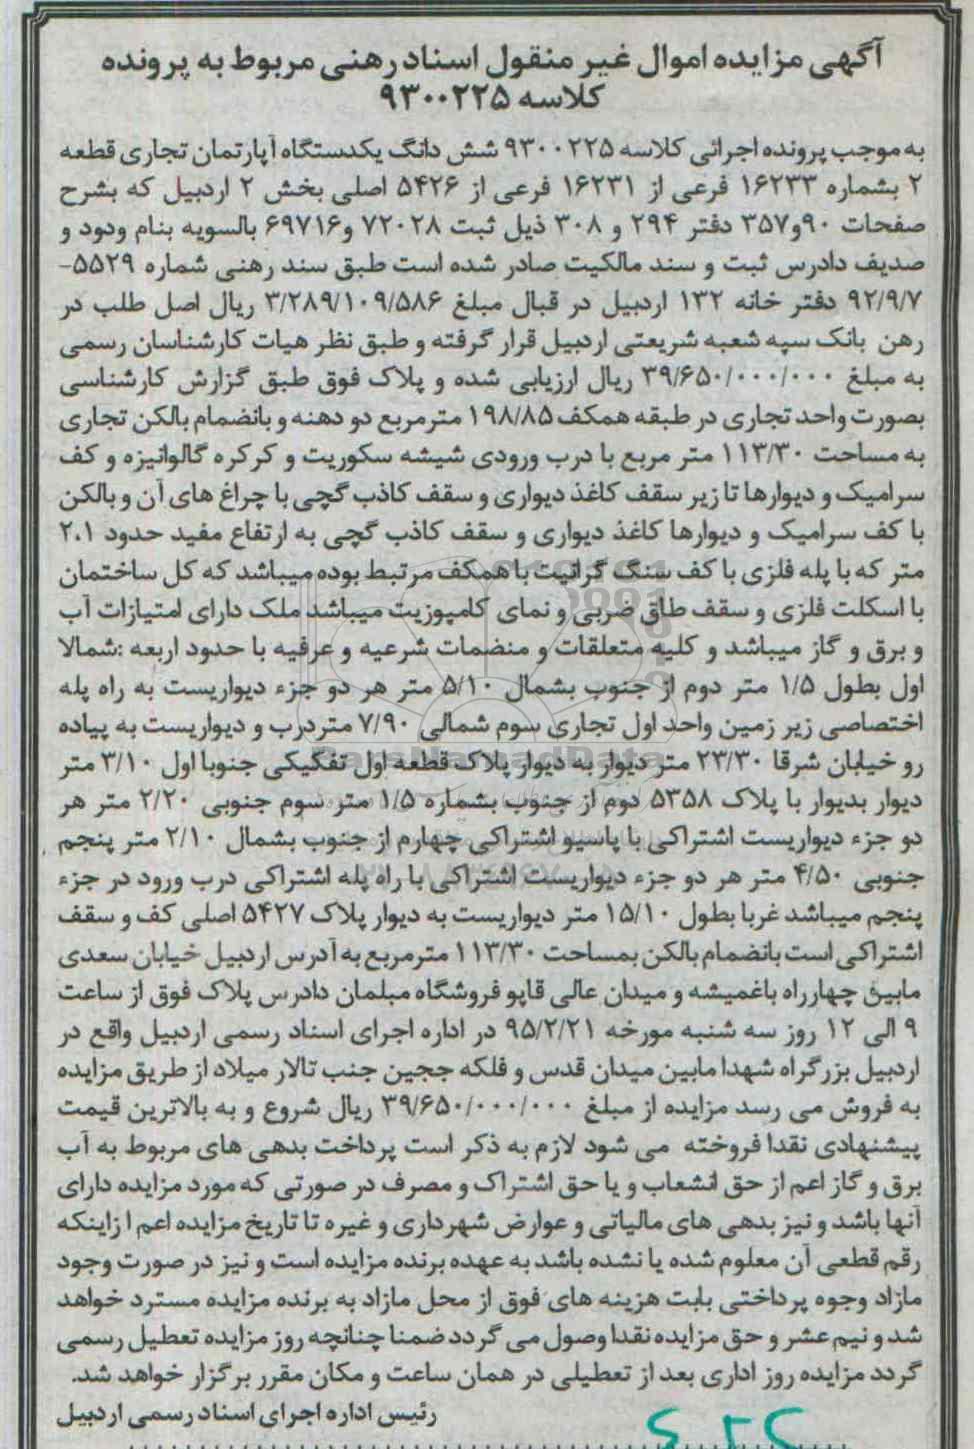 آگهی مزایده اموال غیر منقول اسناد رهنی مربوط به پرونده
کلاسه ۹۳۰۰۲۲۵
به موجب پرونده اجرائی کلاسه ۹۳۰۰۲۲۵ شش دانگ یکدستگاه آپارتمان تجاری قطعه
۲ بشماره ۱۶۲۳۳ فرعی از ۱۶۲۳۱ فرعی از ۵۴۲۶ اصلی بخش ۲ اردبیل که بشرح
صفحات ۹۰و۳۵۷ دفتر ۲۹۴ و ۳۰۸ ذیل ثبت ۷۲۰۲۸ و۶۹۷۱۶ بالسویه بنام ودود و
صدیف دادرس ثبت و سند مالکیت صادر شده است طبق سند رهنی شماره ۵۵۲۹-
۹۲/۹/۷ دفتر خانه ۱۳۲ اردبیل در قبال مبلغ ۳/۲۸۹/۱۰۹/۵۸۶ ریال اصل طلب در
رهن بانک سپه شعبه شریعتی اردبیل قرار گرفته و طبق نظر هیات کارشناسان رسمی
به مبلغ ۳۹/۶۵۰/۰۰۰/۰۰۰ ریال ارزیابی شده و پلاک فوق طبق گزارش کارشناسی
بصورت واحد تجاری در طبقه همکف ۱۹۸/۸۵ مترمربع دو دهنه و بانضمام بالکن تجاری
به مساحت ۱۱۳/۳۰ متر مربع با درب ورودی شیشه سکوریت و کرکره گالوانیزه و کف
سرامیک و دیوارها تا زیر سقف کاغذ دیواری و سقف کاذب گچی با چراغ های آن و بالکن
با کف سرامیک و دیوارها کاغذ دیواری و سقف کاذب گچی به ارتفاع مفید حدود ۲.۱
متر که با پله فلزی با کف سنگ گرانیت با همکف مرتبط بوده میباشد که کل ساختمان
با اسکلت فلزی و سقف طاق ضربی و نمای کامپوزیت میباشد ملک دارای امتیازات آب
و برق و گاز میباشد و کلیه متعلقات و منضمات شرعیه و عرفیه با حدود اربعه :شمالا
اول بطول ۱/۵ متر دوم از جنوب بشمال ۵/۱۰ متر هر دو جزء دیواریست به راه پله
اختصاصی زیر زمین واحد اول تجاری سوم شمالی ۷/۹۰ متردرب و دیواریست به پیاده
رو خیابان شرقا ۲۳/۳۰ متر دیوار به دیوار پلاک قطعه اول تفکیکی جنوبا اول ۳/۱۰ متر
دیوار بدیوار با پلاک ۵۳۵۸ دوم از جنوب بشماره ۱/۵ متر سوم جنوبی ۲/۲۰ متر هر
دو جزء دیواریست اشتراکی با پاسیو اشتراکی چهارم از جنوب بشمال ۲/۱۰ متر پنجم
جنوبی ۴/۵۰ متر هر دو جزء دیواریست اشتراکی با راه پله اشتراکی درب ورود در جزء
پنجم میباشد غربا بطول ۱۵/۱۰ متر دیواریست به دیوار پلاک ۵۴۲۷ اصلی کف و سقف
اشتراکی است بانضمام بالکن بمساحت ۱۱۳/۳۰ مترمربع به آدرس اردبیل خیابان سعدی
مابین چهارراه باغمیشه و میدان عالی قاپو فروشگاه مبلمان دادرس پلاک فوق از ساعت
۹ الی ۱۲ روز سه شنبه مورخه ۹۵/۲/۲۱ در اداره اجرای اسناد رسمی اردبیل واقع در
اردبیل بزرگراه شهدا مابین میدان قدس و فلکه ججین جنب تالار میلاد از طریق مزایده
به فروش می رسد مزایده از مبلغ ۳۹/۶۵۰/۰۰۰/۰۰۰ ریال شروع و به بالاترین قیمت
پیشنهادی نقدا فروخته می شود لازم به ذکر است پرداخت بدهی های مربوط به آب
برق و گاز اعم از حق انشعاب و یا حق اشتراک و مصرف در صورتی که مورد مزایده دارای
آنها باشد و نیز بدهی های مالیاتی و عوارض شهرداری و غیره تا تاریخ مزایده اعم ا زاینکه
رقم قطعی آن معلوم شده یا نشده باشد به عهده برنده مزایده است و نیز در صورت وجود
مازاد وجوه پرداختی بابت هزینه های فوق از محل مازاد به برنده مزایده مسترد خواهد
شد و نیم عشر و حق مزایده نقدا وصول می گردد ضمنا چنانچه روز مزایده تعطیل رسمی
گردد مزایده روز اداری بعد از تعطیلی در همان ساعت و مکان مقرر برگزار خواهد شد.
رئیس اداره اجرای اسناد رسمی اردبیل